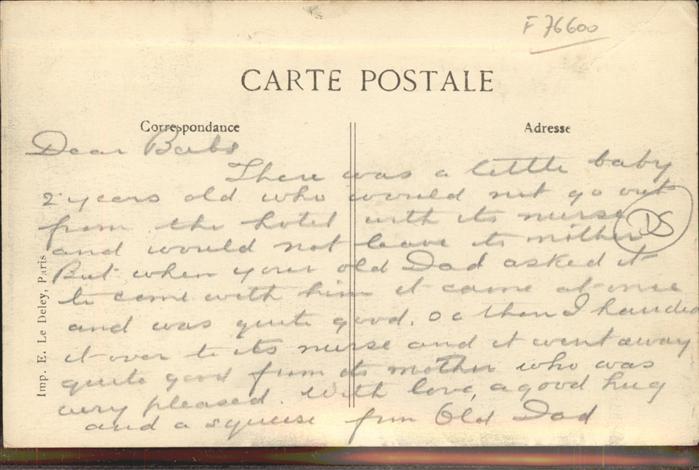 F 76600
CARTE POSTALE
Correspondance
Adresse
Dear Babs
There was a little baby
2 years old who would not go out
from the hotel with its nurse
and would not leave its mother
DS
But when your old Dad asked it
to come with him it came at once
and was quite good. then I handed
it over to its nurse and it went away
quite good from its mother who was
very pleased. With love, a good hug
and a squeese from Old Dad
Imp. E. Le Deley, Paris